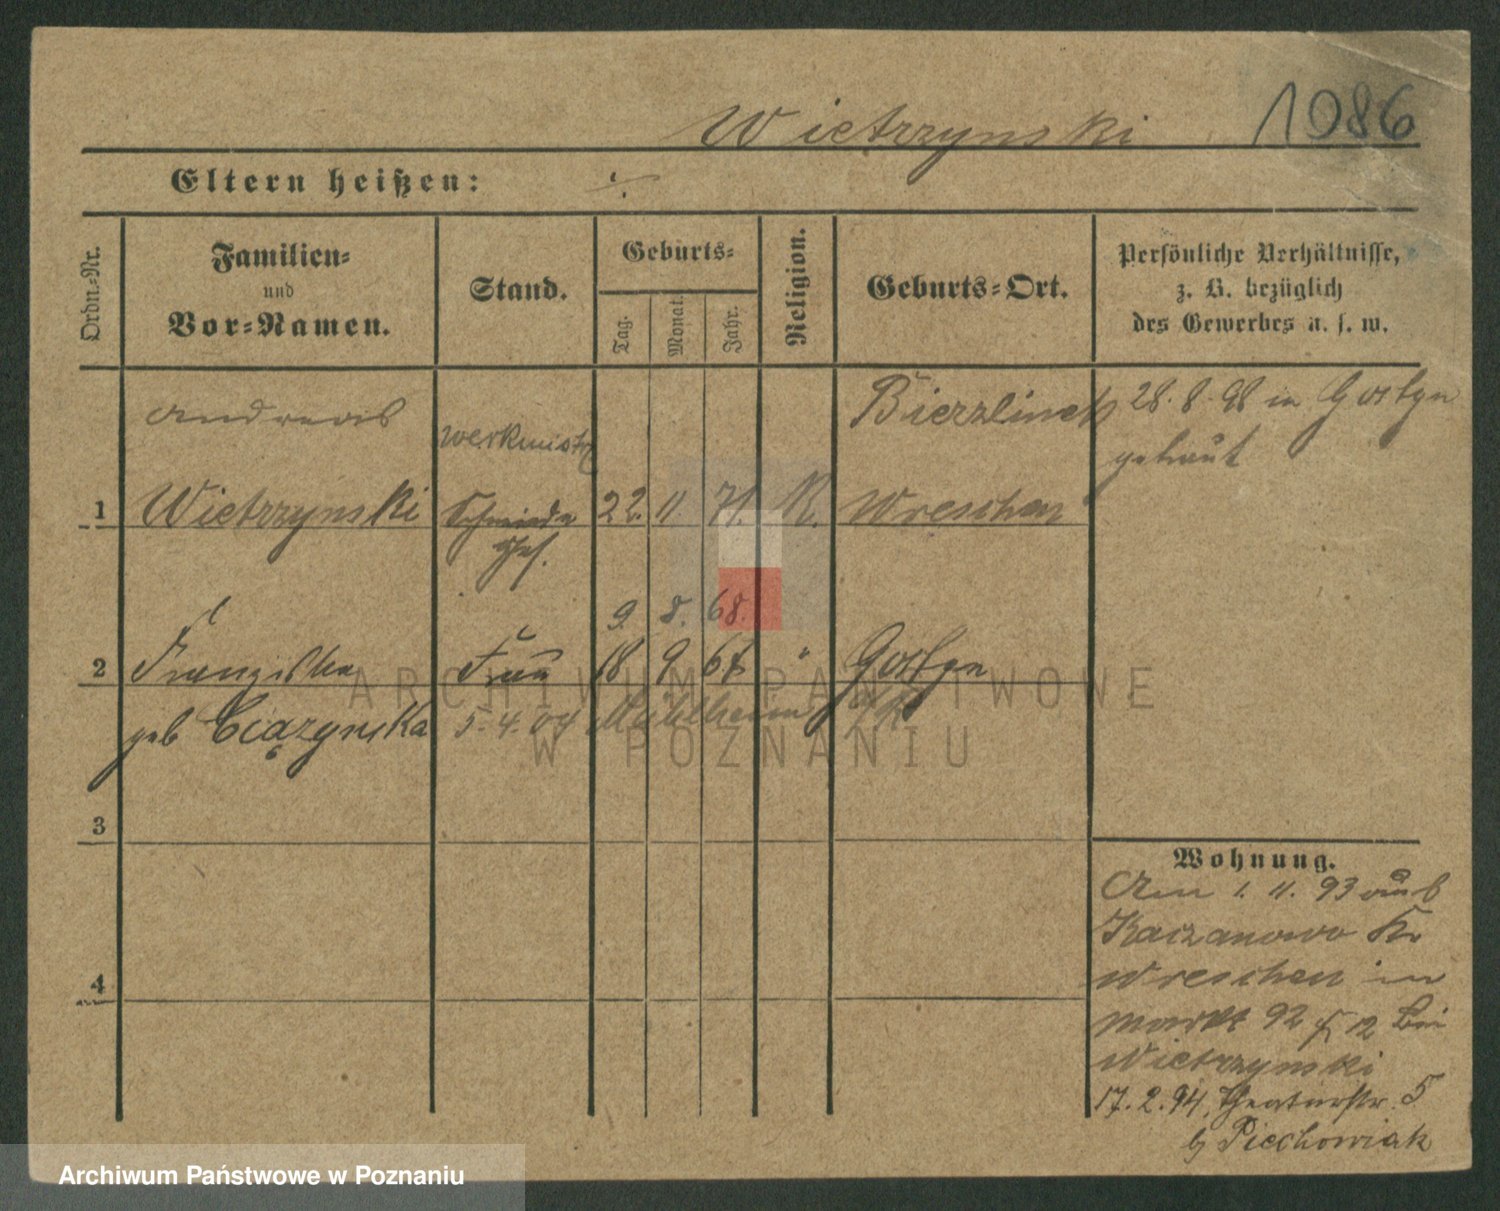 Wietrzynski 1986
Eltern heißen: ·/.
Ordn.-Nr.
Familien-
und
Vor-Namen.
Stand.
Geburts-
Tag.
Monat.
Jahr.
Religion.
Geburts-Ort.
Persönliche Verhältnisse,
z. B. bezüglich
des Gewerbes u. s. w.
Andreas
Werkmstr
Bierzlinek
28. 8. 98 in Gostyn
getraut
1 Wietrzynski Schmiede 22. 11 71. K. Wreschen
Ges.
9. 8. 68.
2 Franziska Frau 18 9 67 " Gostyn
geb Ciązynska 5.4.04 Mühlheim a/R
3
4
Wohnung.
Am 1. 11. 93 aus
Kaczanowo Kr
Wreschen in
Markt 92 12 bei
Wietrzynski
17. 2. 94, Theaterstr. 5
b/ Piechowiak
ARCHIWUM PAŃSTWOWE
W POZNANIU
Archiwum Państwowe w Poznaniu